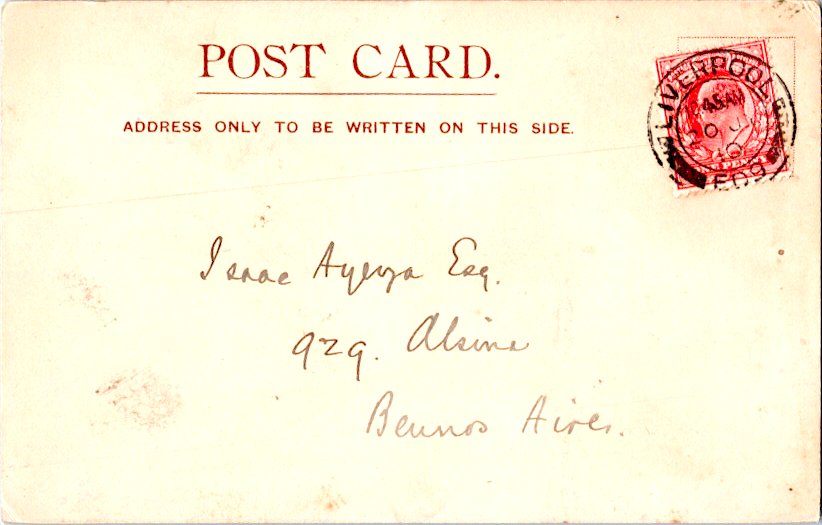 POST CARD.
ADDRESS ONLY TO BE WRITTEN ON THIS SIDE.
LIVERPOOL
45 AM
10
E09
Isaac Ayerza Esq.
929. Alsina
Beunos Aires.